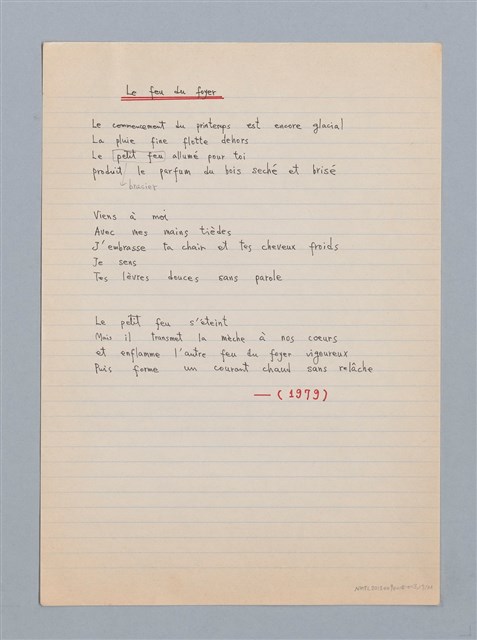 Le feu du foyer
Le commencement du printemps est encore glacial
La pluie fine flotte dehors
Le petit feu allumé pour toi
produit le parfum du bois seché et brisé
brasier
Viens à moi
Avec mes mains tièdes
J'embrasse ta chair et tes cheveux froids
Je sens
Tes lèvres douces sans parole
Le petit feu s'éteint
Mais il transmet la mèche à nos cœurs
et enflamme l'autre feu du foyer vigoureux
Puis forme un courant chaud sans relâche
— (1979)